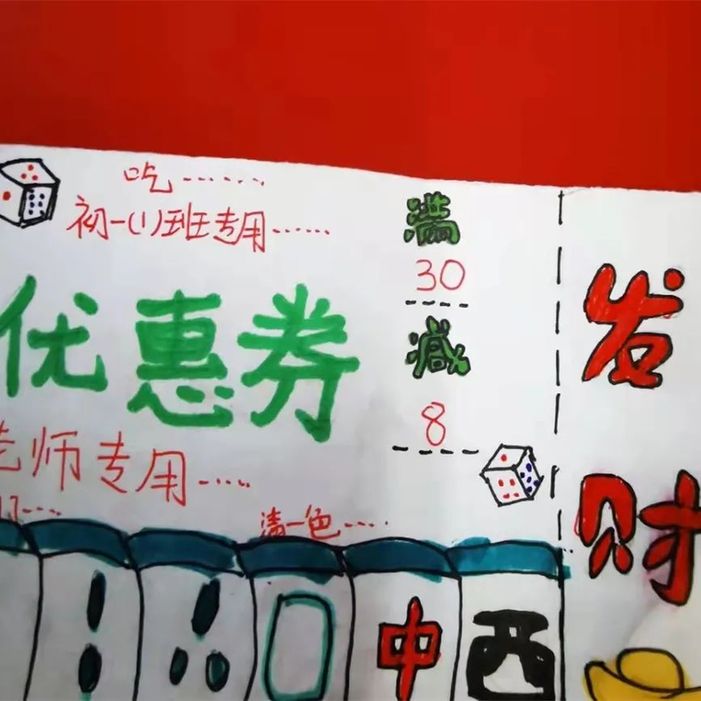 吃......
初一(1)班专用......
满
30
减
8
优惠券
老师专用....
清一色....
中
西
发
财